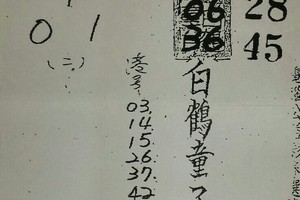 06 28
36 45
0 1
(二)
港号
03.
14.
15.
26.
37.
42
白鶴童